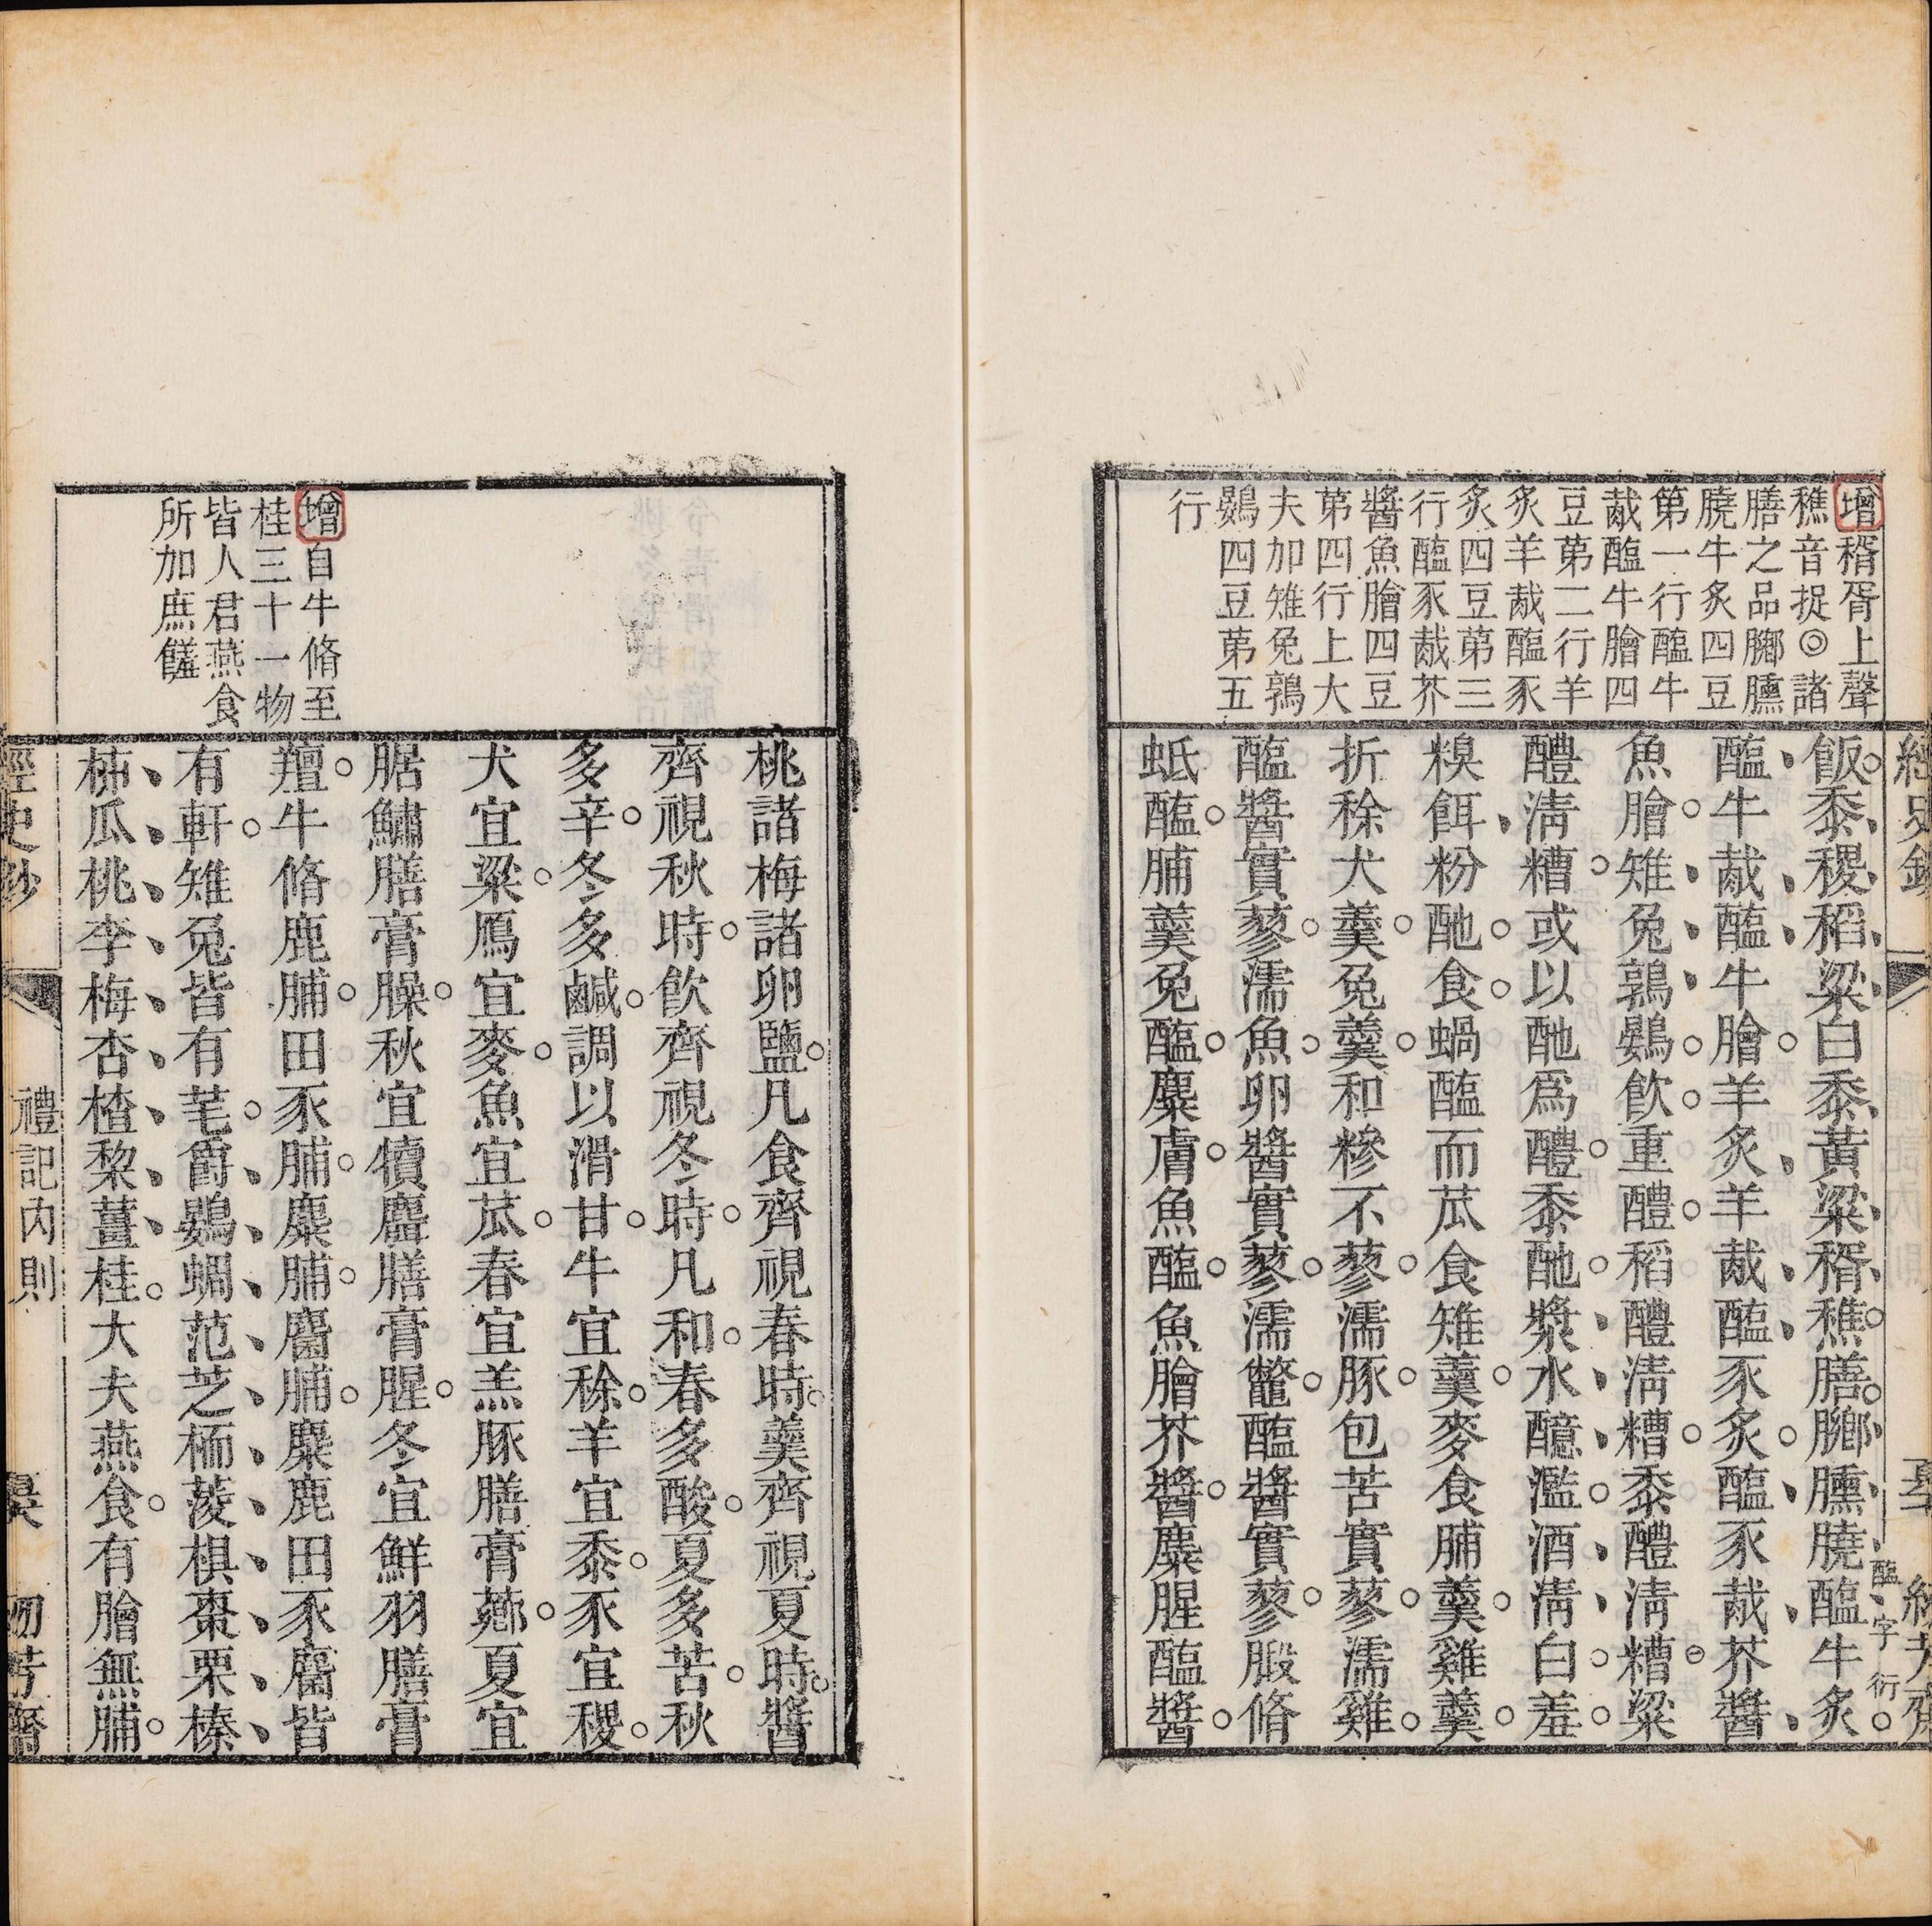 增稰胥上聲
穛音捉◎諸
膳之品膷臐
膮牛炙四豆
第一行醢牛
胾醢牛膾四
豆第二行羊
炙羊胾醢豕
炙四豆第三
行醢豕胾芥
醬魚膾四豆
第四行上大
夫加雉兔鶉
鷃四豆第五
行
飯。黍、稷、稻、粱、白黍、黃粱、稰、穛。膳。膷、臐、膮、醢牛炙。
醢字衍
醢、牛胾、醢、牛膾。羊炙、羊胾、醢、豕炙。醢、豕胾、芥醬、
魚膾。雉、兔、鶉、鷃。飲。重醴。稻醴淸糟。黍醴淸糟。粱
醴淸糟。或以酏爲醴。黍酏。漿、水、醷、濫。酒、淸、白。羞。
糗餌、粉酏。食。蝸醢而苽食雉羹。麥食脯羹。雞羹。
折稌犬羹。兔羹。和糝不蓼。濡豚。包苦實蓼。濡雞。
醢醬實蓼。濡魚。卵醬實蓼。濡鼈。醢醬實蓼。腶脩
蚳醢。脯羹兔醢。麋膚。魚醢。魚膾芥醬。麋腥醢醬。
桃諸梅諸卵鹽。凡食齊視春時。羹齊視夏時。醬
齊視秋時。飮齊視冬時。凡和。春多酸。夏多苦。秋
多辛。冬多鹹。調以滑甘。牛宜稌。羊宜黍。豕宜稷。
犬宜粱。鴈宜麥。魚宜苽。春宜羔豚膳膏薌。夏宜
腒鱐膳膏臊。秋宜犢麛膳膏腥。冬宜鮮羽膳膏
羶。牛脩鹿脯。田豕脯。麋脯。麕脯。麋鹿田豕麕皆
有軒。雉兔皆有芼。爵、鷃、蜩、范、芝、栭、蔆、椇、棗、栗、榛、
柿、瓜、桃、李、梅、杏、楂、棃、薑、桂。大夫燕食。有膾無脯。
增自牛脩至
桂三十一物
皆人君燕食
所加庶饈
禮記內則